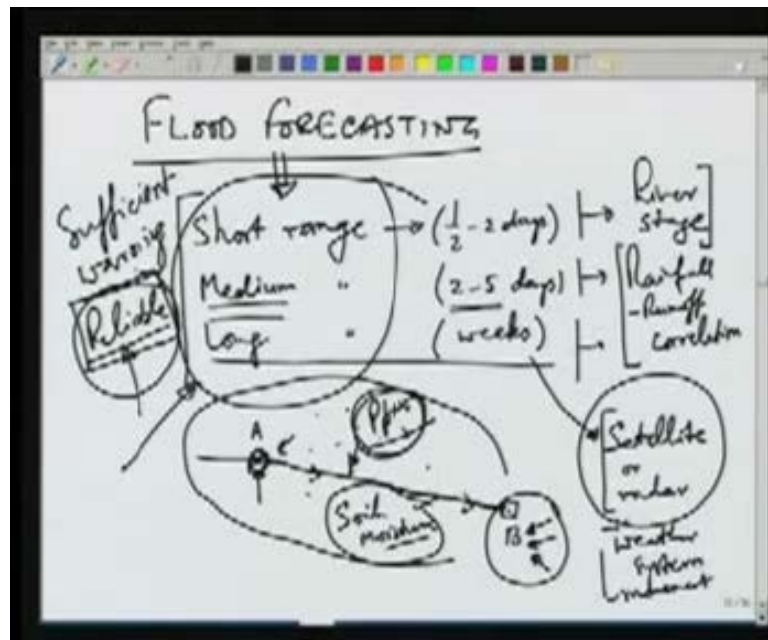 FLOOD FORECASTING
Sufficient
warning
Reliable
Short range → (1/2 - 2 days)
River
stage
Medium " (2-5 days)
Long " (weeks)
Rainfall
-Runoff
correlation
Satellite
or
radar
weather
system
movement
A
Soil
moisture
B